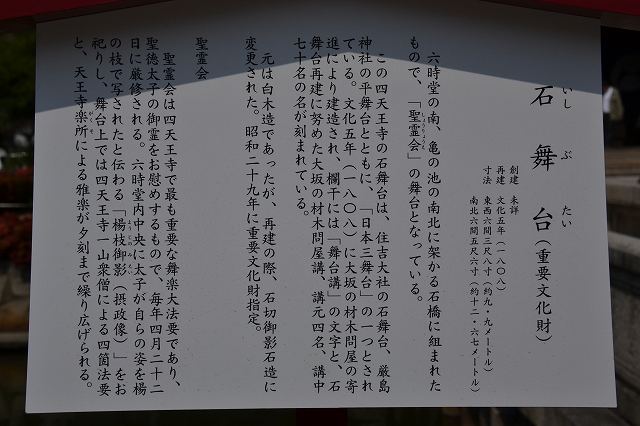 石舞台（重要文化財）
いし ぶ たい
創建 未詳
再建 文化五年（一八〇八）
寸法 東西六間三尺六寸（約九・九メートル）
南北六間五尺六寸（約十二・六七メートル）
六時堂の南、亀の池の南北に架かる石橋に組まれた
もので、「聖霊会」の舞台となっている。
しょうりょうえ
この四天王寺の石舞台は、住吉大社の石舞台、厳島
神社の平舞台とともに、「日本三舞台」の一つとされ
ている。文化五年（一八〇八）に大坂の材木問屋の寄
進により建造され、欄干には「舞台講」の文字と、石
舞台再建に努めた大坂の材木問屋講、講元四名、講中
七十名の名が刻まれている。
元は白木造であったが、再建の際、石切御影石造に
変更された。昭和二十九年に重要文化財指定。
聖霊会
聖霊会は四天王寺で最も重要な舞楽大法要であり、
聖徳太子の御霊をお慰めするもので、毎年四月二十二
日に厳修される。六時堂内中央に太子が自らの姿を楊
の枝で写されたと伝わる「楊枝御影（摂政像）」をお
ようじのみえい
祀りし、舞台上では四天王寺一山衆僧による四箇法要
と、天王寺楽所による雅楽が夕刻まで繰り広げられる。
がくそ